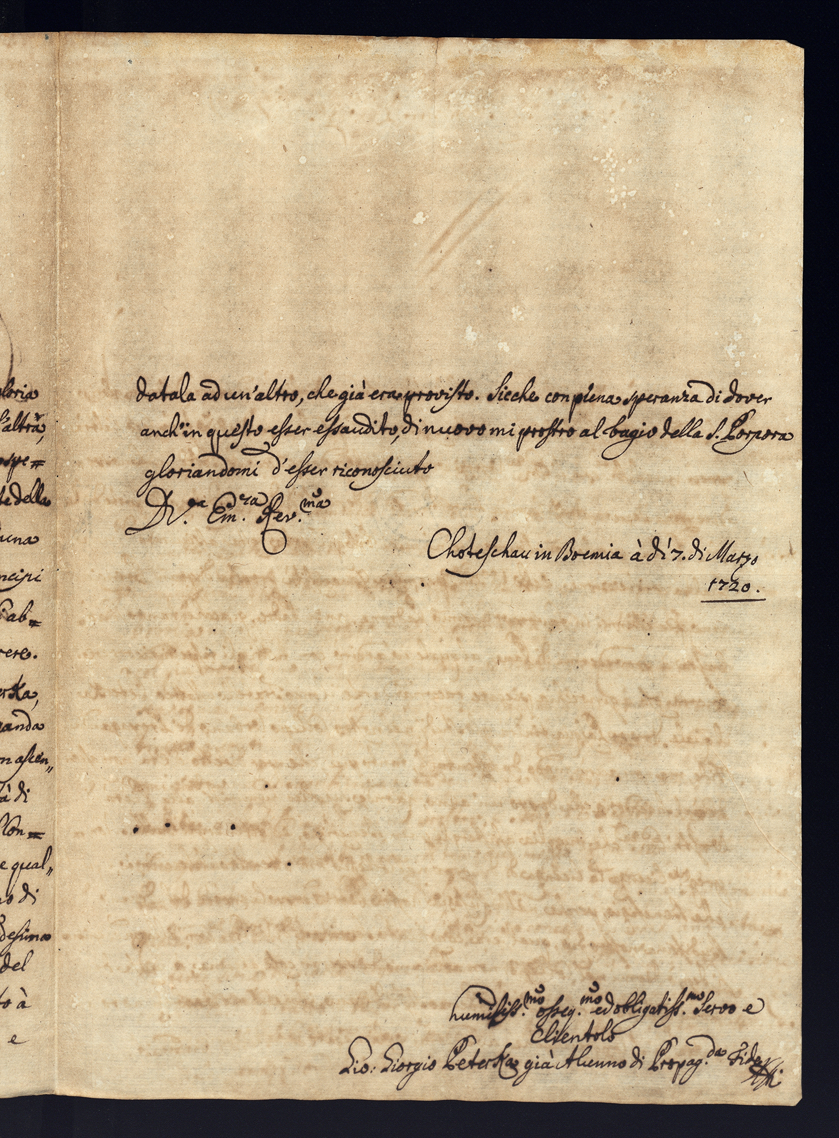 loria
l'altra,
ospe=
te della
una
ncipi
Gab=
vere.
erska,
randa
n ascen„
à di
Non=
e qual„
o di
desima
del
to à
e
datala ad un'altro, che già era provisto. Sicche con piena speranza di dover
anch'in questo esser essaudito, di nuovo mi prostro al bagio della S. Porpora
gloriandomi d'esser riconosciuto
D. V.ra Em.za Rev.ma
Choteschau in Boemia à dì 7. di Marzo
1720.
humilliss.mo osseq.mo ed obligatiss.mo Servo e
Clientolo
Gio: Giorgio Peterska già Alunno di Propag.da Fide